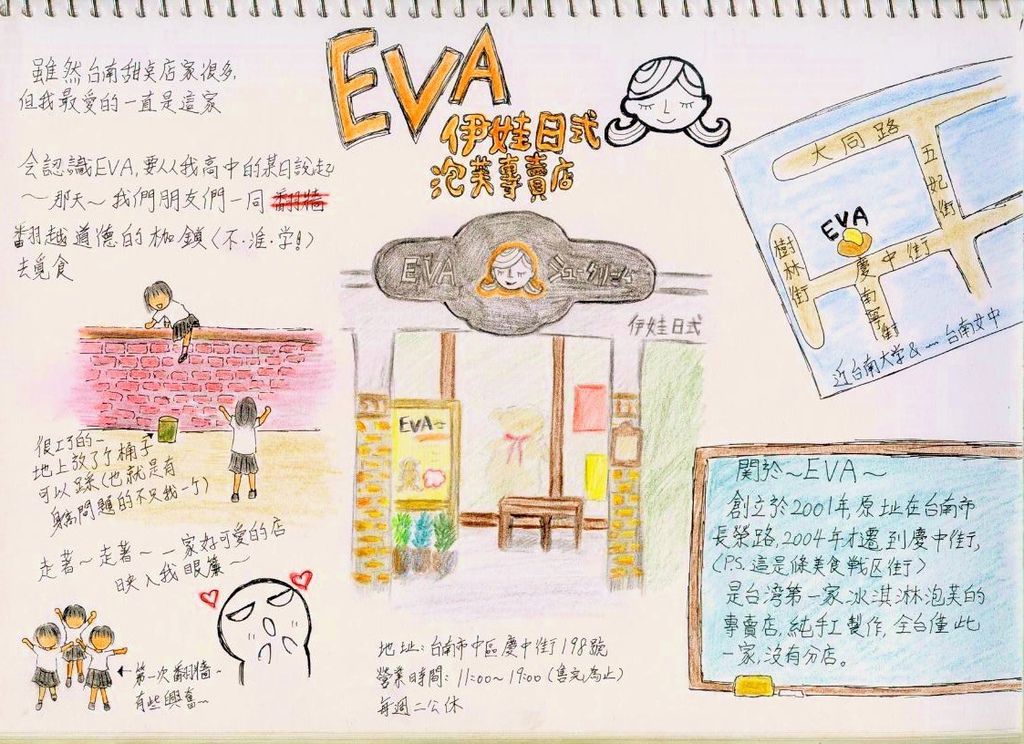 雖然台南甜點店家很多,
但我最愛的一直是這家
会認識EVA,要从我高中的某日說起
～那天～我們朋友們一同翻墻
翻越道德的枷鎖(不·准·学!)
去覓食
很巧的-
地上放了个桶子
可以踩(也就是有
身高問題的不只我一个)
走著～走著～一家好可愛的店
映入我眼簾～
第一次翻牆~
有些興奮~
EVA
伊娃日式
泡芙專賣店
EVA シュークリーム
伊娃日式
EVA
地址:台南市中區慶中街198號
營業時間:11:00~19:00(售完為止)
每週二公休
大同路
五妃街
EVA
樹林街
慶中街
慶南等街
近台南大学&...台南女中
關於～EVA～
創立於2001年,原址在台南市
長榮路,2004年才遷到慶中街,
(P.S.這是條美食戰区街)
是台湾第一家冰淇淋泡芙的
專賣店,純手工製作,全台僅此
一家,沒有分店。